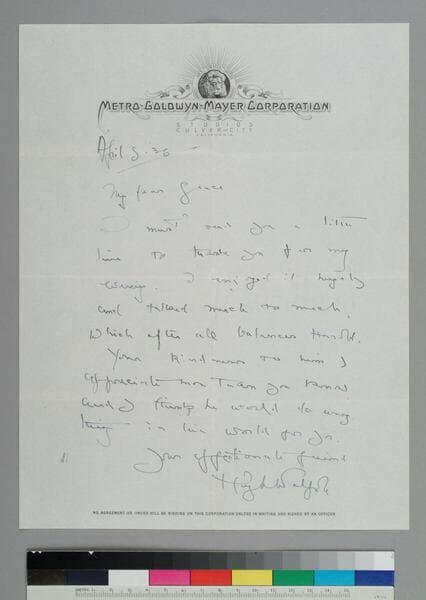 METRO-GOLDWYN-MAYER CORPORATION
STUDIOS
CULVER-CITY
CALIFORNIA
April 3. 36
My dear Grace
I must send you a little
line to thank you for my
evening. I enjoyed it hugely
and talked much too much.
Which after all balances Harold.
Your kindness to him I
appreciate more than you know
and I think he would do any
thing in the world for you.
Your affectionate friend
Hugh Walpole
NO AGREEMENT OR ORDER WILL BE BINDING ON THIS CORPORATION UNLESS IN WRITING AND SIGNED BY AN OFFICER